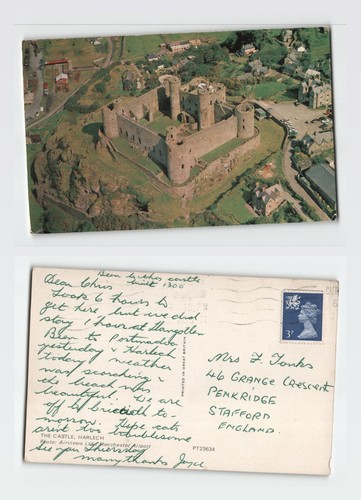 Been to this castle
built 1300
Dear Chris
Took 6 hours to
get here, but we did
stay 1 hour at Llangollen
Been to Portmadoc
yesterday & Harlech
today, weather
was scorching &
the beach was
beautiful. We are
off to Criccieth to-
morrow. Hope cats
arent too troublesome
See you Thursday
many thanks Joyce.
THE CASTLE, HARLECH
Photo: Airviews Ltd., Manchester Airport
PT23634
PRINTED IN GREAT BRITAIN
3P
Mrs F. Tonks
46 GRANGE CRESCENT
PENKRIDGE
STAFFORD
ENGLAND.